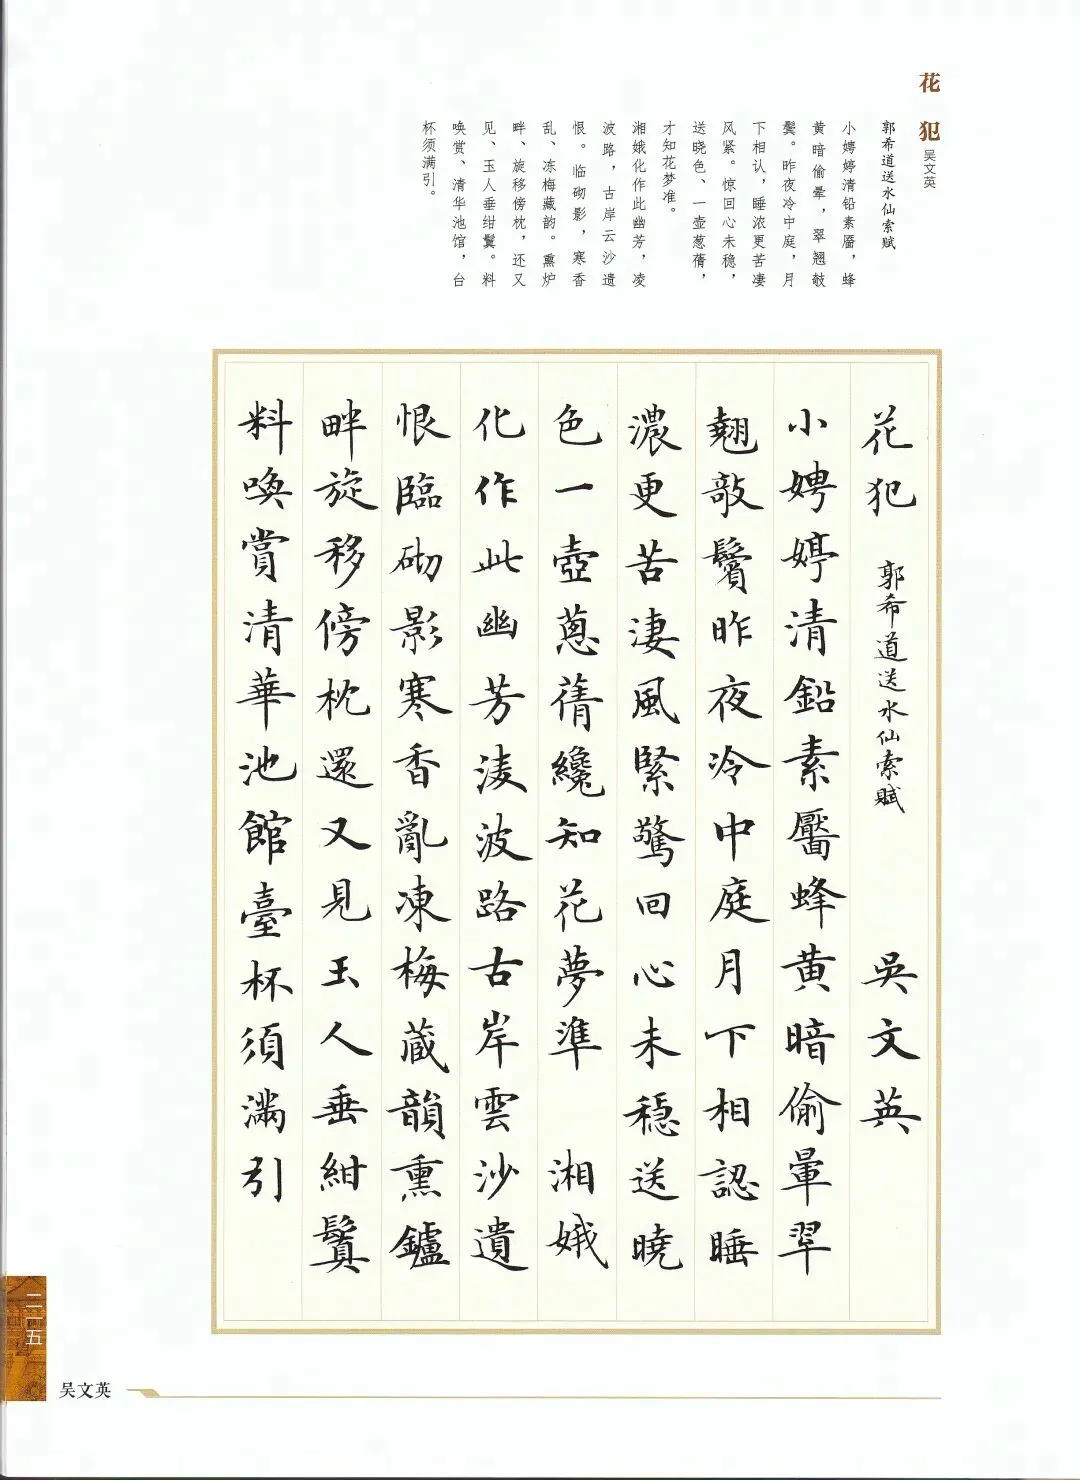 花犯 吴文英
郭希道送水仙索赋
小娉婷清铅素靥，蜂
黄暗偷晕，翠翘敧
鬓。昨夜冷中庭，月
下相认，睡浓更苦凄
风紧。惊回心未稳，
送晓色、一壶葱蒨，
才知花梦准。
湘娥化作此幽芳，凌
波路，古岸云沙遗
恨。临砌影，寒香
乱、冻梅藏韵。熏炉
畔、旋移傍枕，还又
见、玉人垂绀鬒。料
唤赏、清华池馆，台
杯须满引。
花犯 郭希道送水仙索賦 吳文英
小娉婷清鉛素靨蜂黄暗偷暈翠
翹敧鬢昨夜冷中庭月下相認睡
濃更苦淒風緊驚回心未穩送曉
色一壺蔥蒨纔知花夢準 湘娥
化作此幽芳淩波路古岸雲沙遺
恨臨砌影寒香亂凍梅蔵韻熏鑪
畔旋移傍枕還又見玉人垂紺鬒
料喚賞清華池館臺杯須滿引
二一五
吴文英